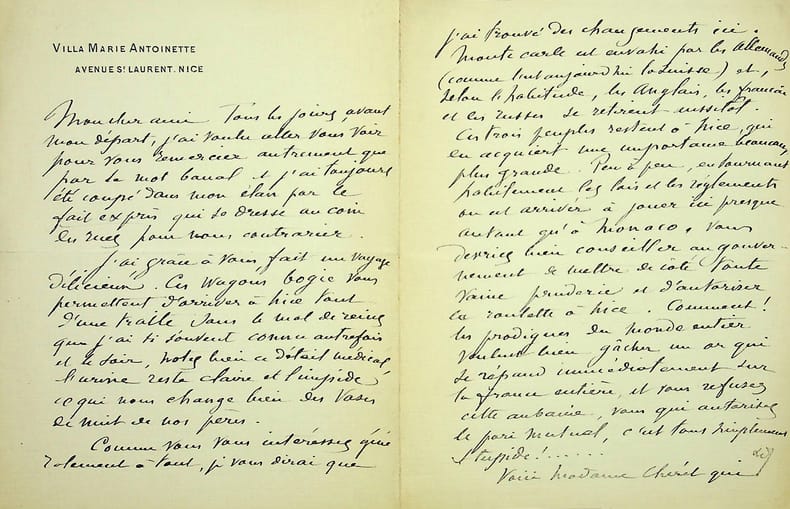 VILLA MARIE ANTOINETTE
AVENUE ST LAURENT. NICE
Mon cher ami Tous les jours, avant
mon départ, j'ai voulu aller vous voir
pour vous remercier autrement que
par le mot banal et j'ai toujours
été coupé dans mon élan par le
fait exprès qui se dresse au coin
des rues pour nous contrarier.
J'ai grâce à vous fait un voyage
délicieux. Ces wagons bogie vous
permettent d'arriver à Nice tout
d'une traite sans le mal de reins
que j'ai si souvent connu autrefois
et le soir, notez bien ce détail médical,
l'urine reste claire et limpide
ce qui nous change bien des vases
de nuit de nos pères.
Comme vous vous intéressez géné
ralement à tout, je vous dirai que
j'ai trouvé des changements ici.
Monte carle est envahi par les Allemands
(comme l'est aujourd'hui la Suisse) et,
selon l'habitude, les Anglais, les français
et les russes se retirent aussitôt.
Ces trois peuples restent à Nice, qui
en acquiert une importance beaucoup
plus grande. Peu à peu, en tournant
habilement les lois et les réglements
on est arrivé à jouer ici presque
autant qu'à Monaco. Vous
devriez bien conseiller au gouver-
nement de mettre de côté toute
vaine pruderie et d'autoriser
la roulette à Nice. Comment!
les prodigues du monde entier
veulent bien gâcher un or qui
se répand immédiatement sur
la france entière, et vous refusez
cette aubaine, vous qui autorisez
le pari mutuel, c'est tout simplement
stupide!......
Voici madame Chéret qui